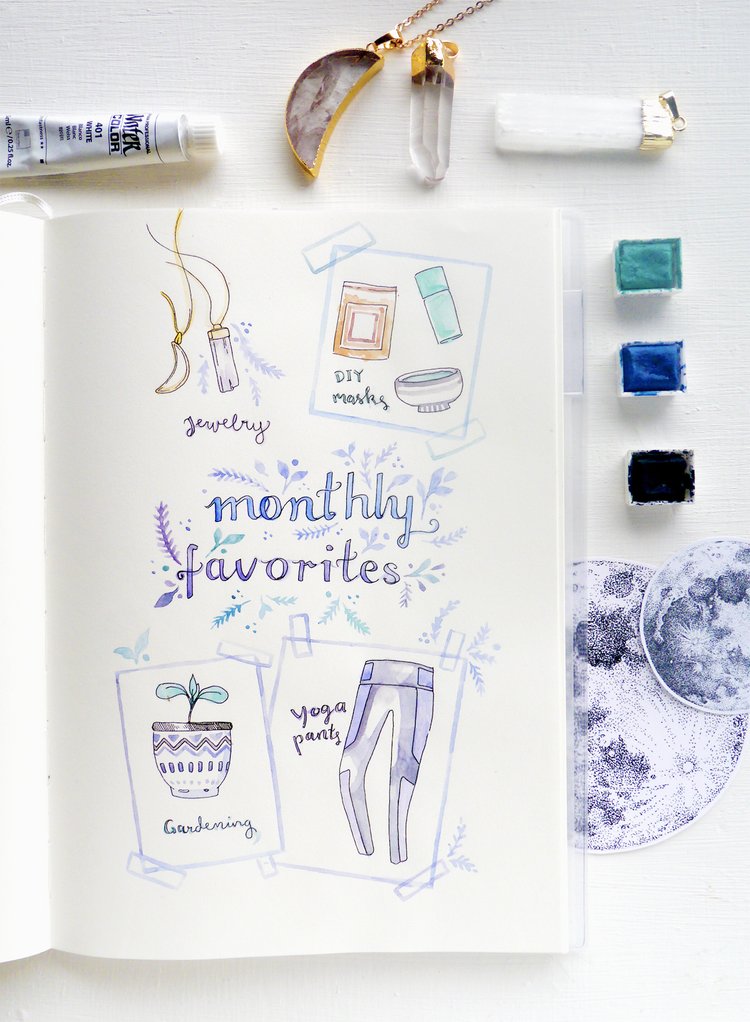 WATER
COLOR
401
WHITE
Jewelry
DIY
masks
monthly
favorites
yoga
pants
Gardening